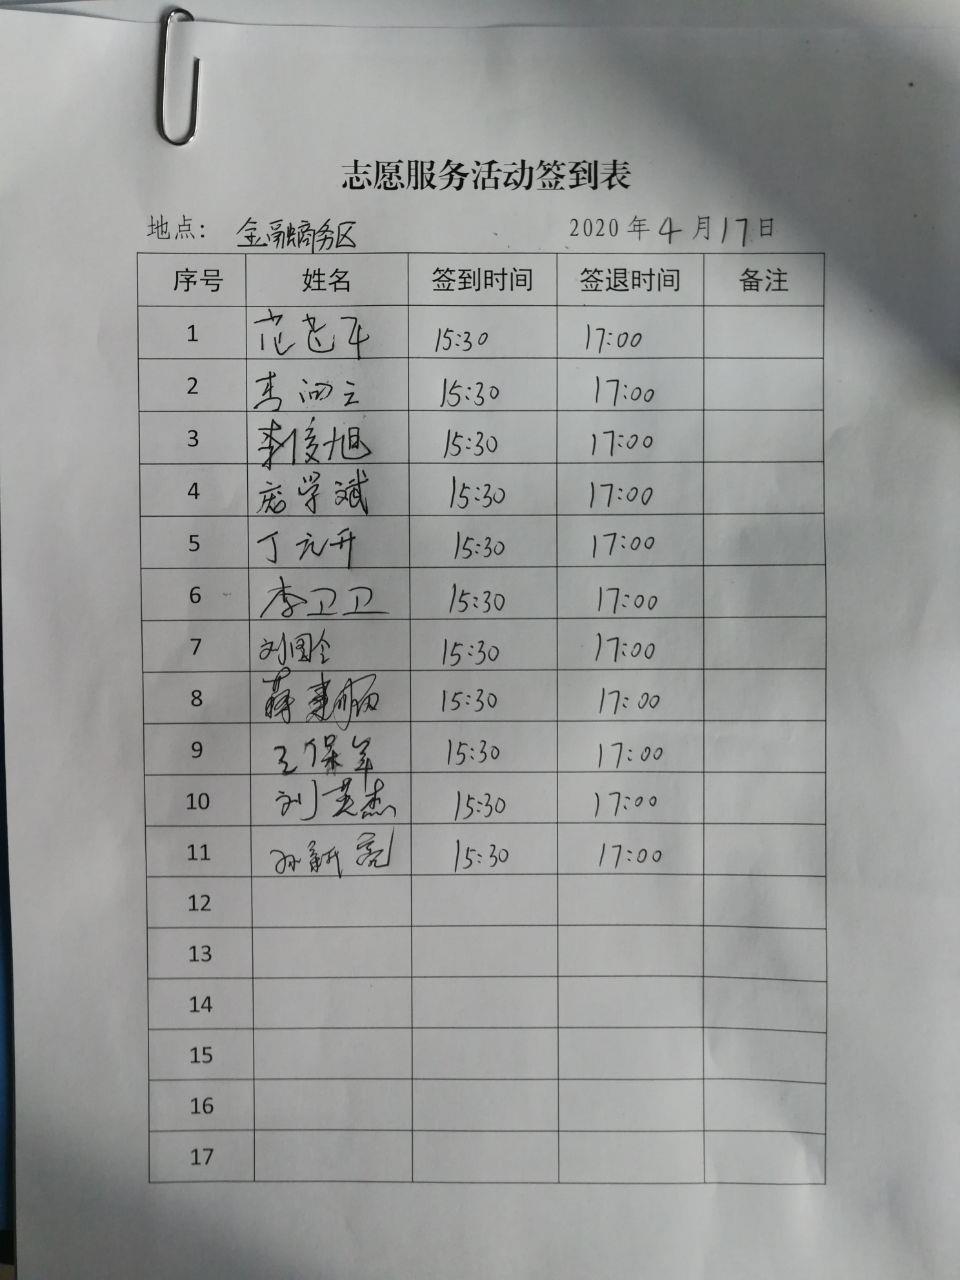 志愿服务活动签到表
地点: 金融商务区 2020年4月17日
序号 姓名 签到时间 签退时间 备注
1 15:30 17:00
2 15:30 17:00
3 李俊旭 15:30 17:00
4 庞学斌 15:30 17:00
5 丁元开 15:30 17:00
6 李卫卫 15:30 17:00
7 刘国全 15:30 17:00
8 薛 15:30 17:00
9 王保军 15:30 17:00
10 刘英杰 15:30 17:00
11 孙 15:30 17:00
12
13
14
15
16
17